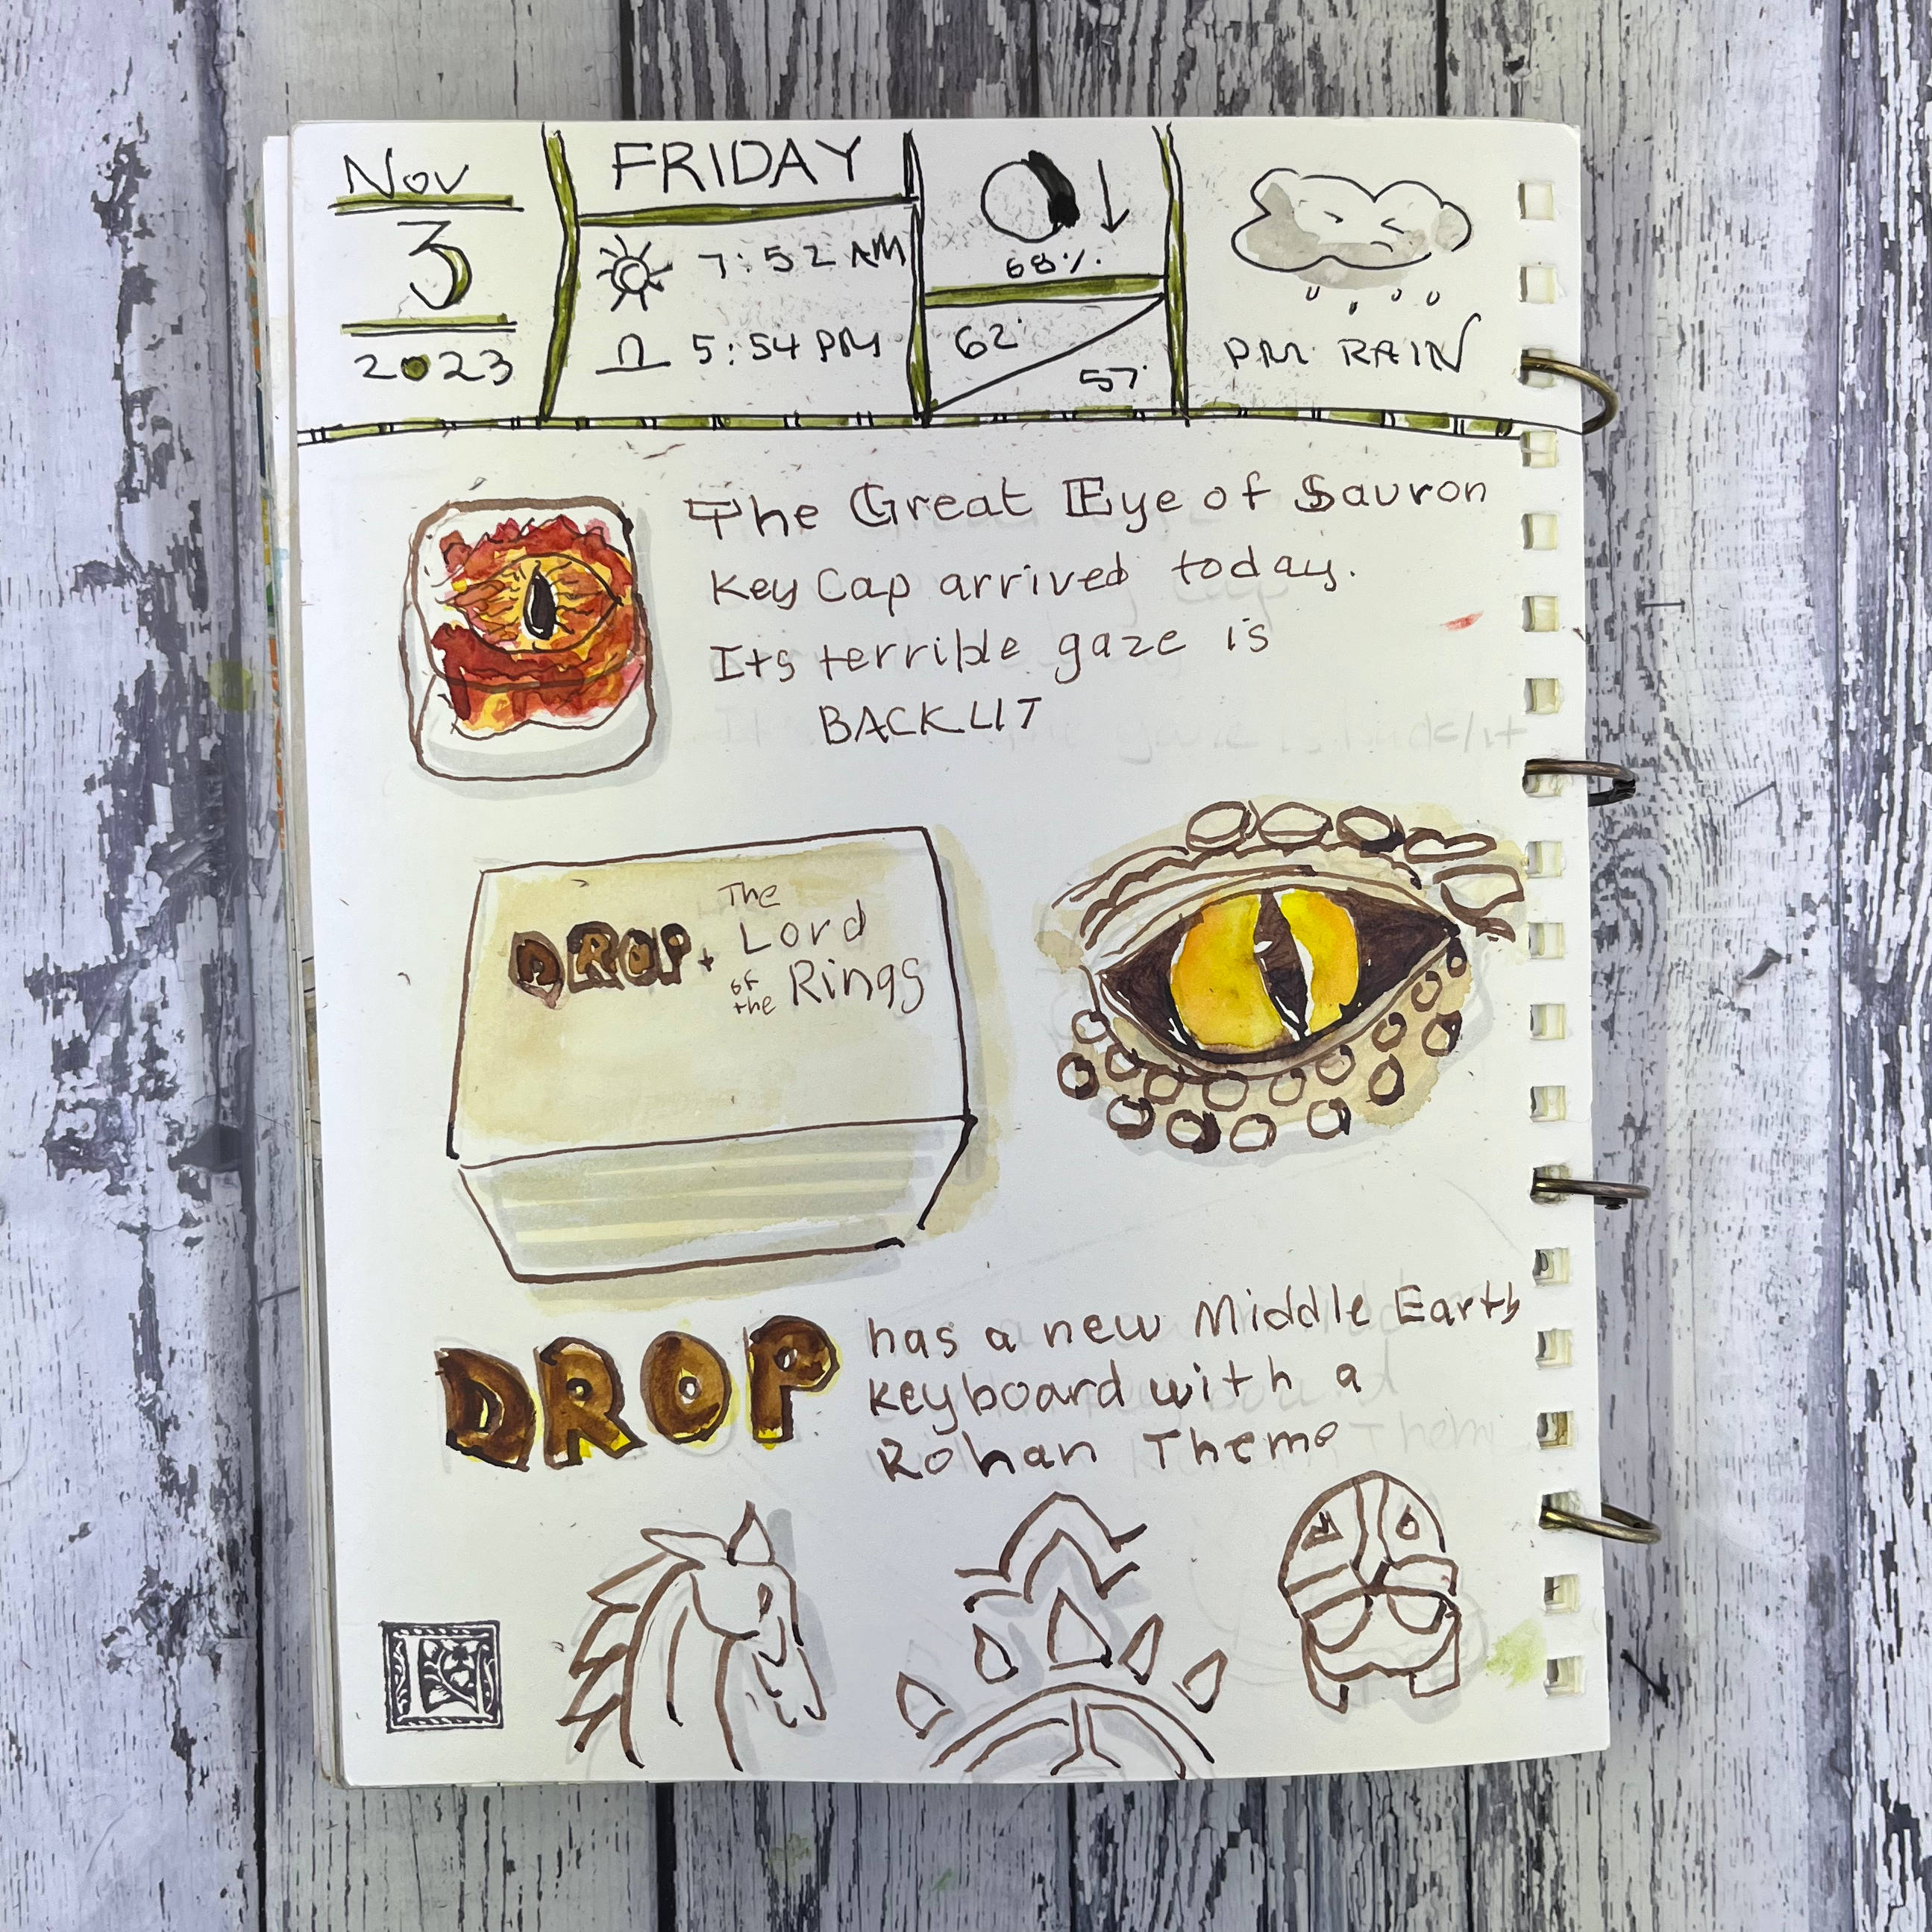 Nov
3
2023
FRIDAY
7:52 AM
5:54 PM
68%
62°
57°
PM RAIN
The Great Eye of Sauron
Key Cap arrived today.
Its terrible gaze is
BACKLIT
DROP + The Lord of the Rings
DROP has a new Middle Earth
Keyboard with a
Rohan Theme